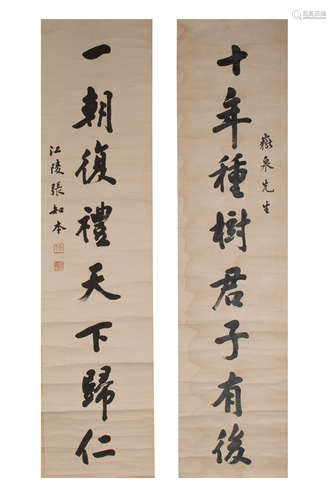 十年種樹君子有後
嶽泉先生
一朝復禮天下歸仁
江陵張知本